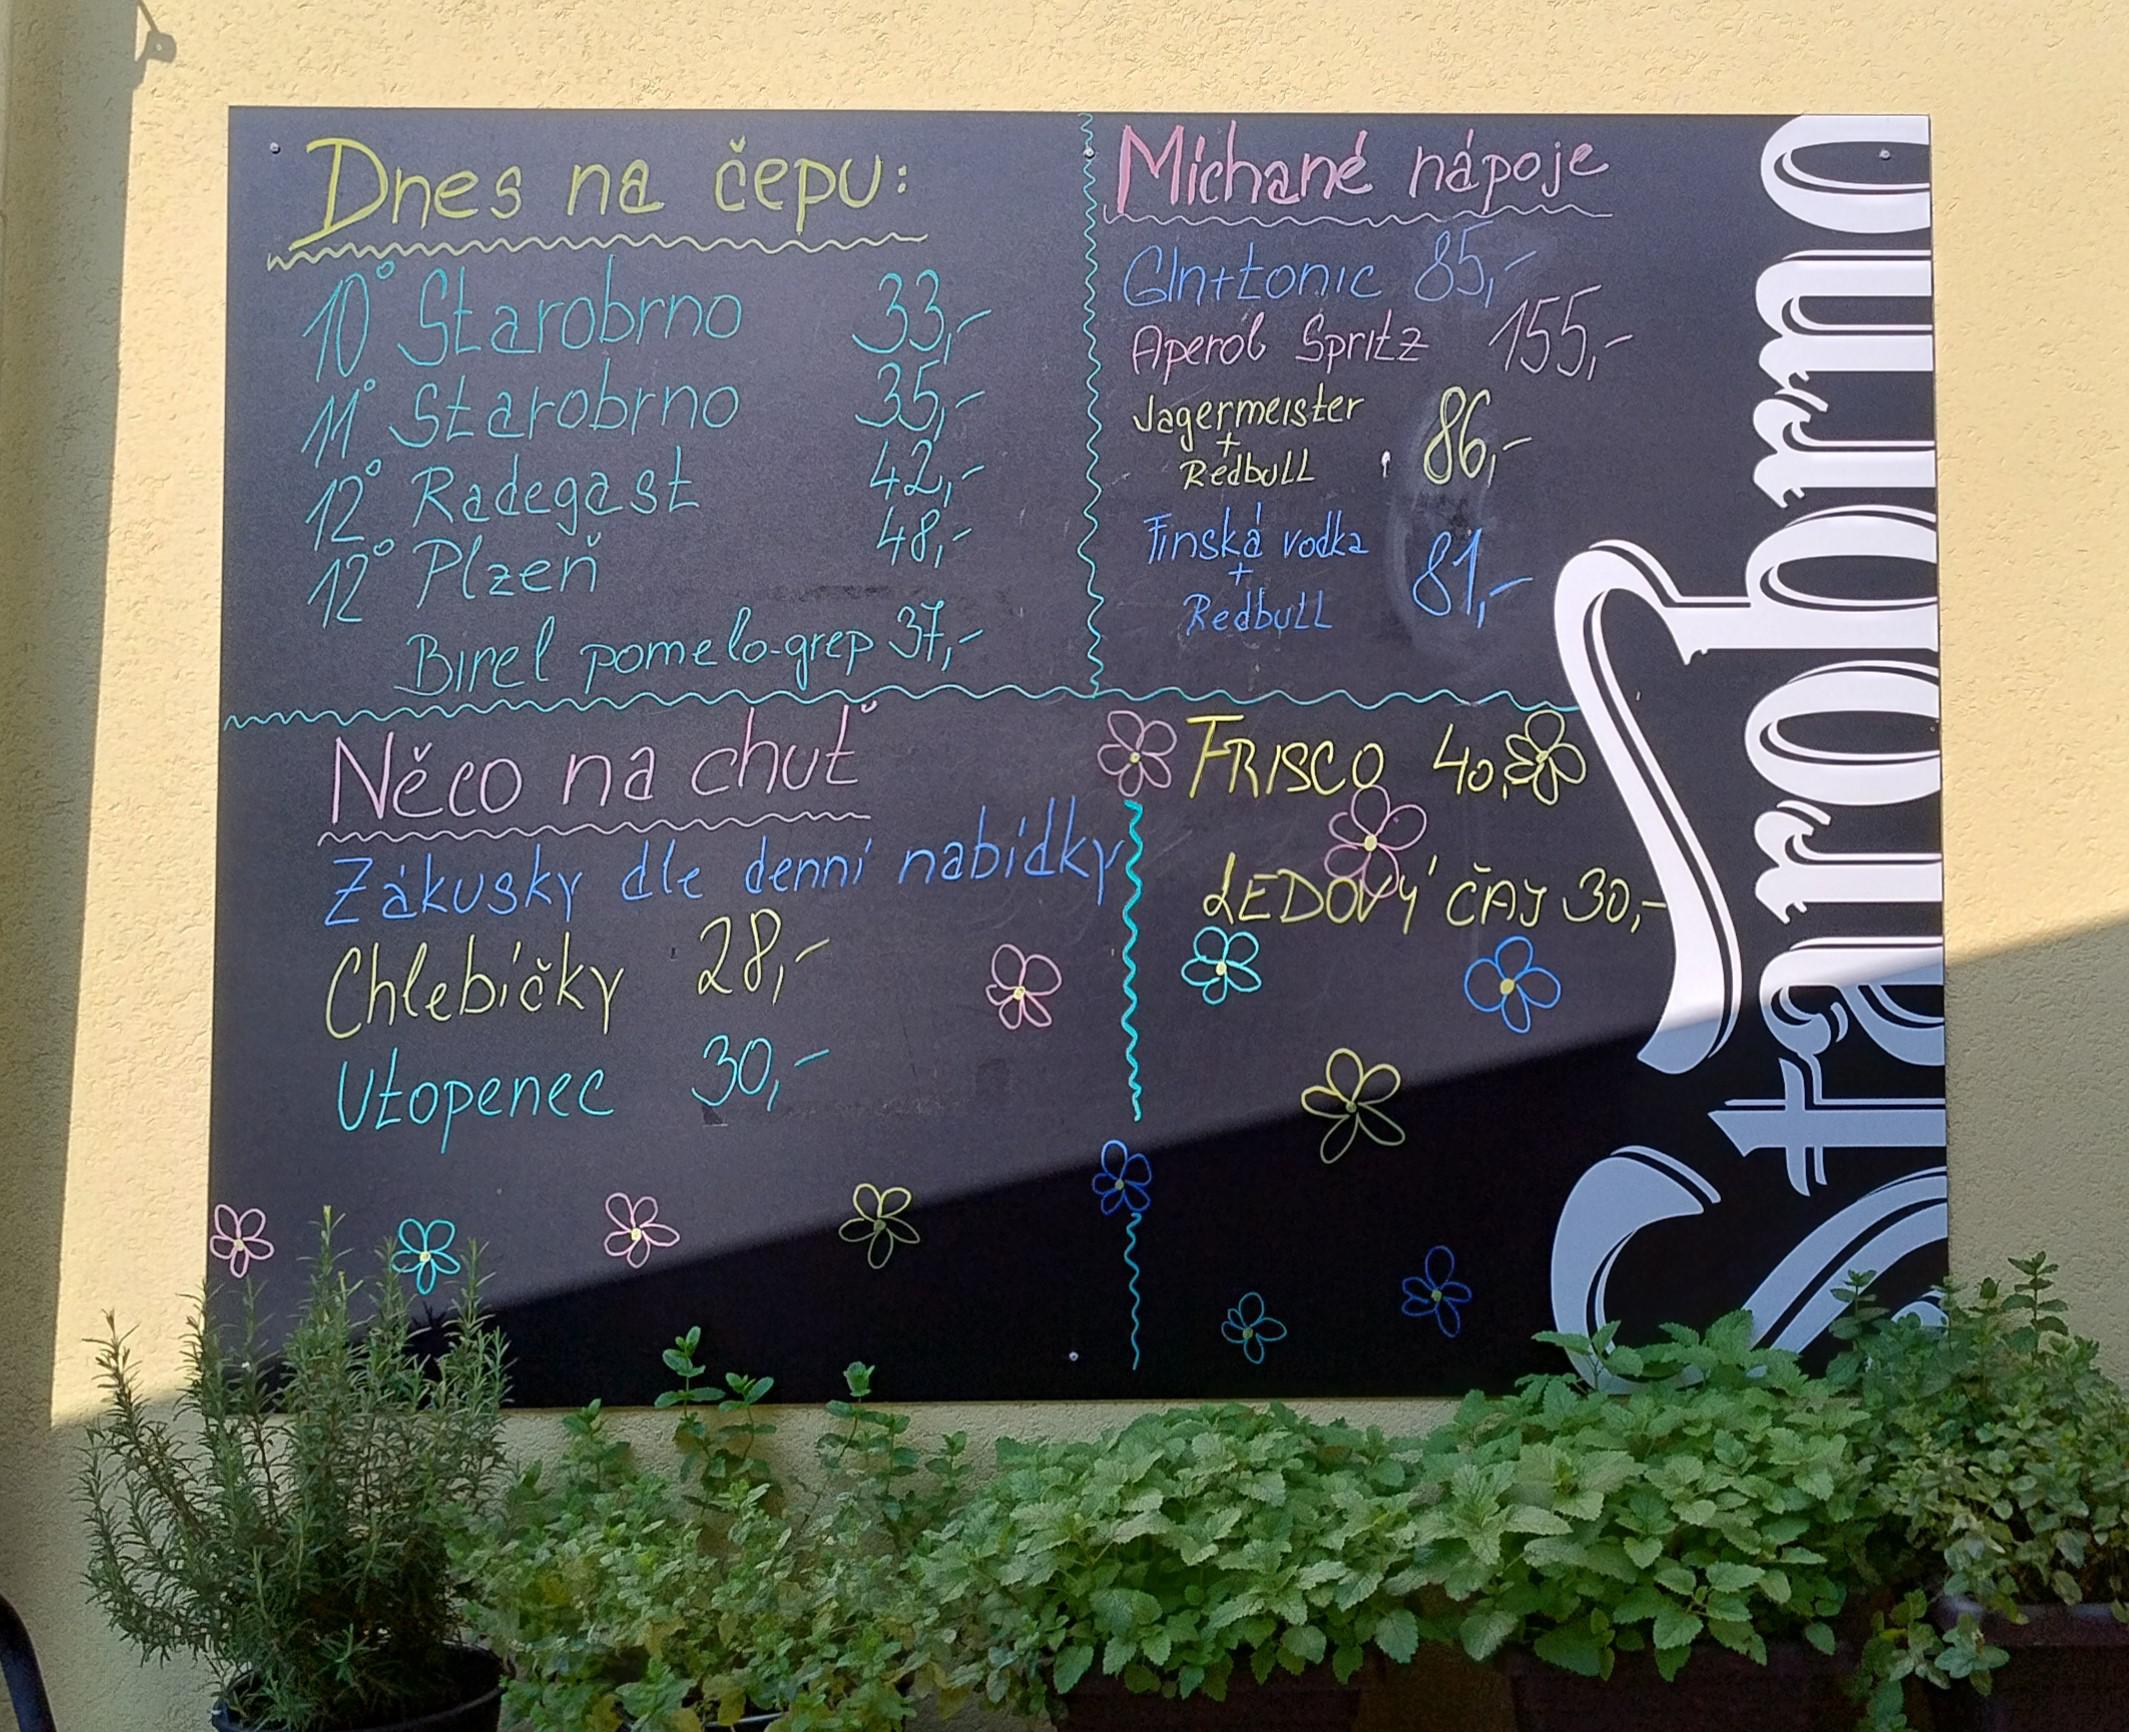 Dnes na čepu:
10° Starobrno 33,-
11° Starobrno 35,-
12° Radegast 42,-
12° Plzeň 48,-
Birel pomelo-grep 37,-
Míchané nápoje
Gin+tonic 85,-
Aperol Spritz 155,-
Jagermeister
+
Redbull 86,-
Finská vodka
+
Redbull 81,-
Něco na chuť
Zákusky dle denní nabídky
Chlebíčky 28,-
Utopenec 30,-
FRISCO 40,-
LEDOVÝ ČAJ 30,-
Starobrno